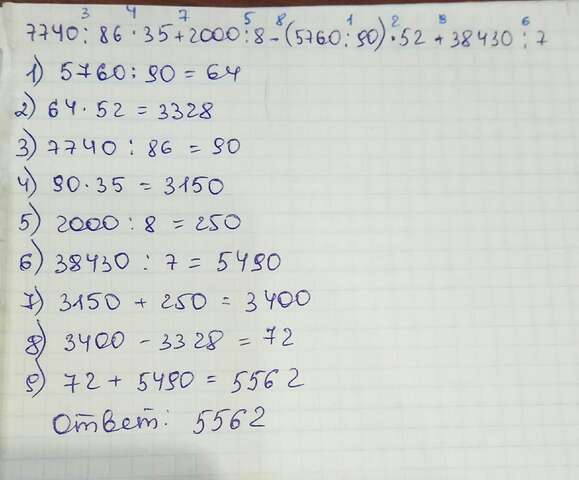 3 4 7 5 8 1 2 9 6
7740 : 86 · 35 + 2000 : 8 - (5760 : 90) · 52 + 38430 : 7
1) 5760 : 90 = 64
2) 64 · 52 = 3328
3) 7740 : 86 = 90
4) 90 · 35 = 3150
5) 2000 : 8 = 250
6) 38430 : 7 = 5490
7) 3150 + 250 = 3400
8) 3400 - 3328 = 72
9) 72 + 5490 = 5562
Ответ: 5562